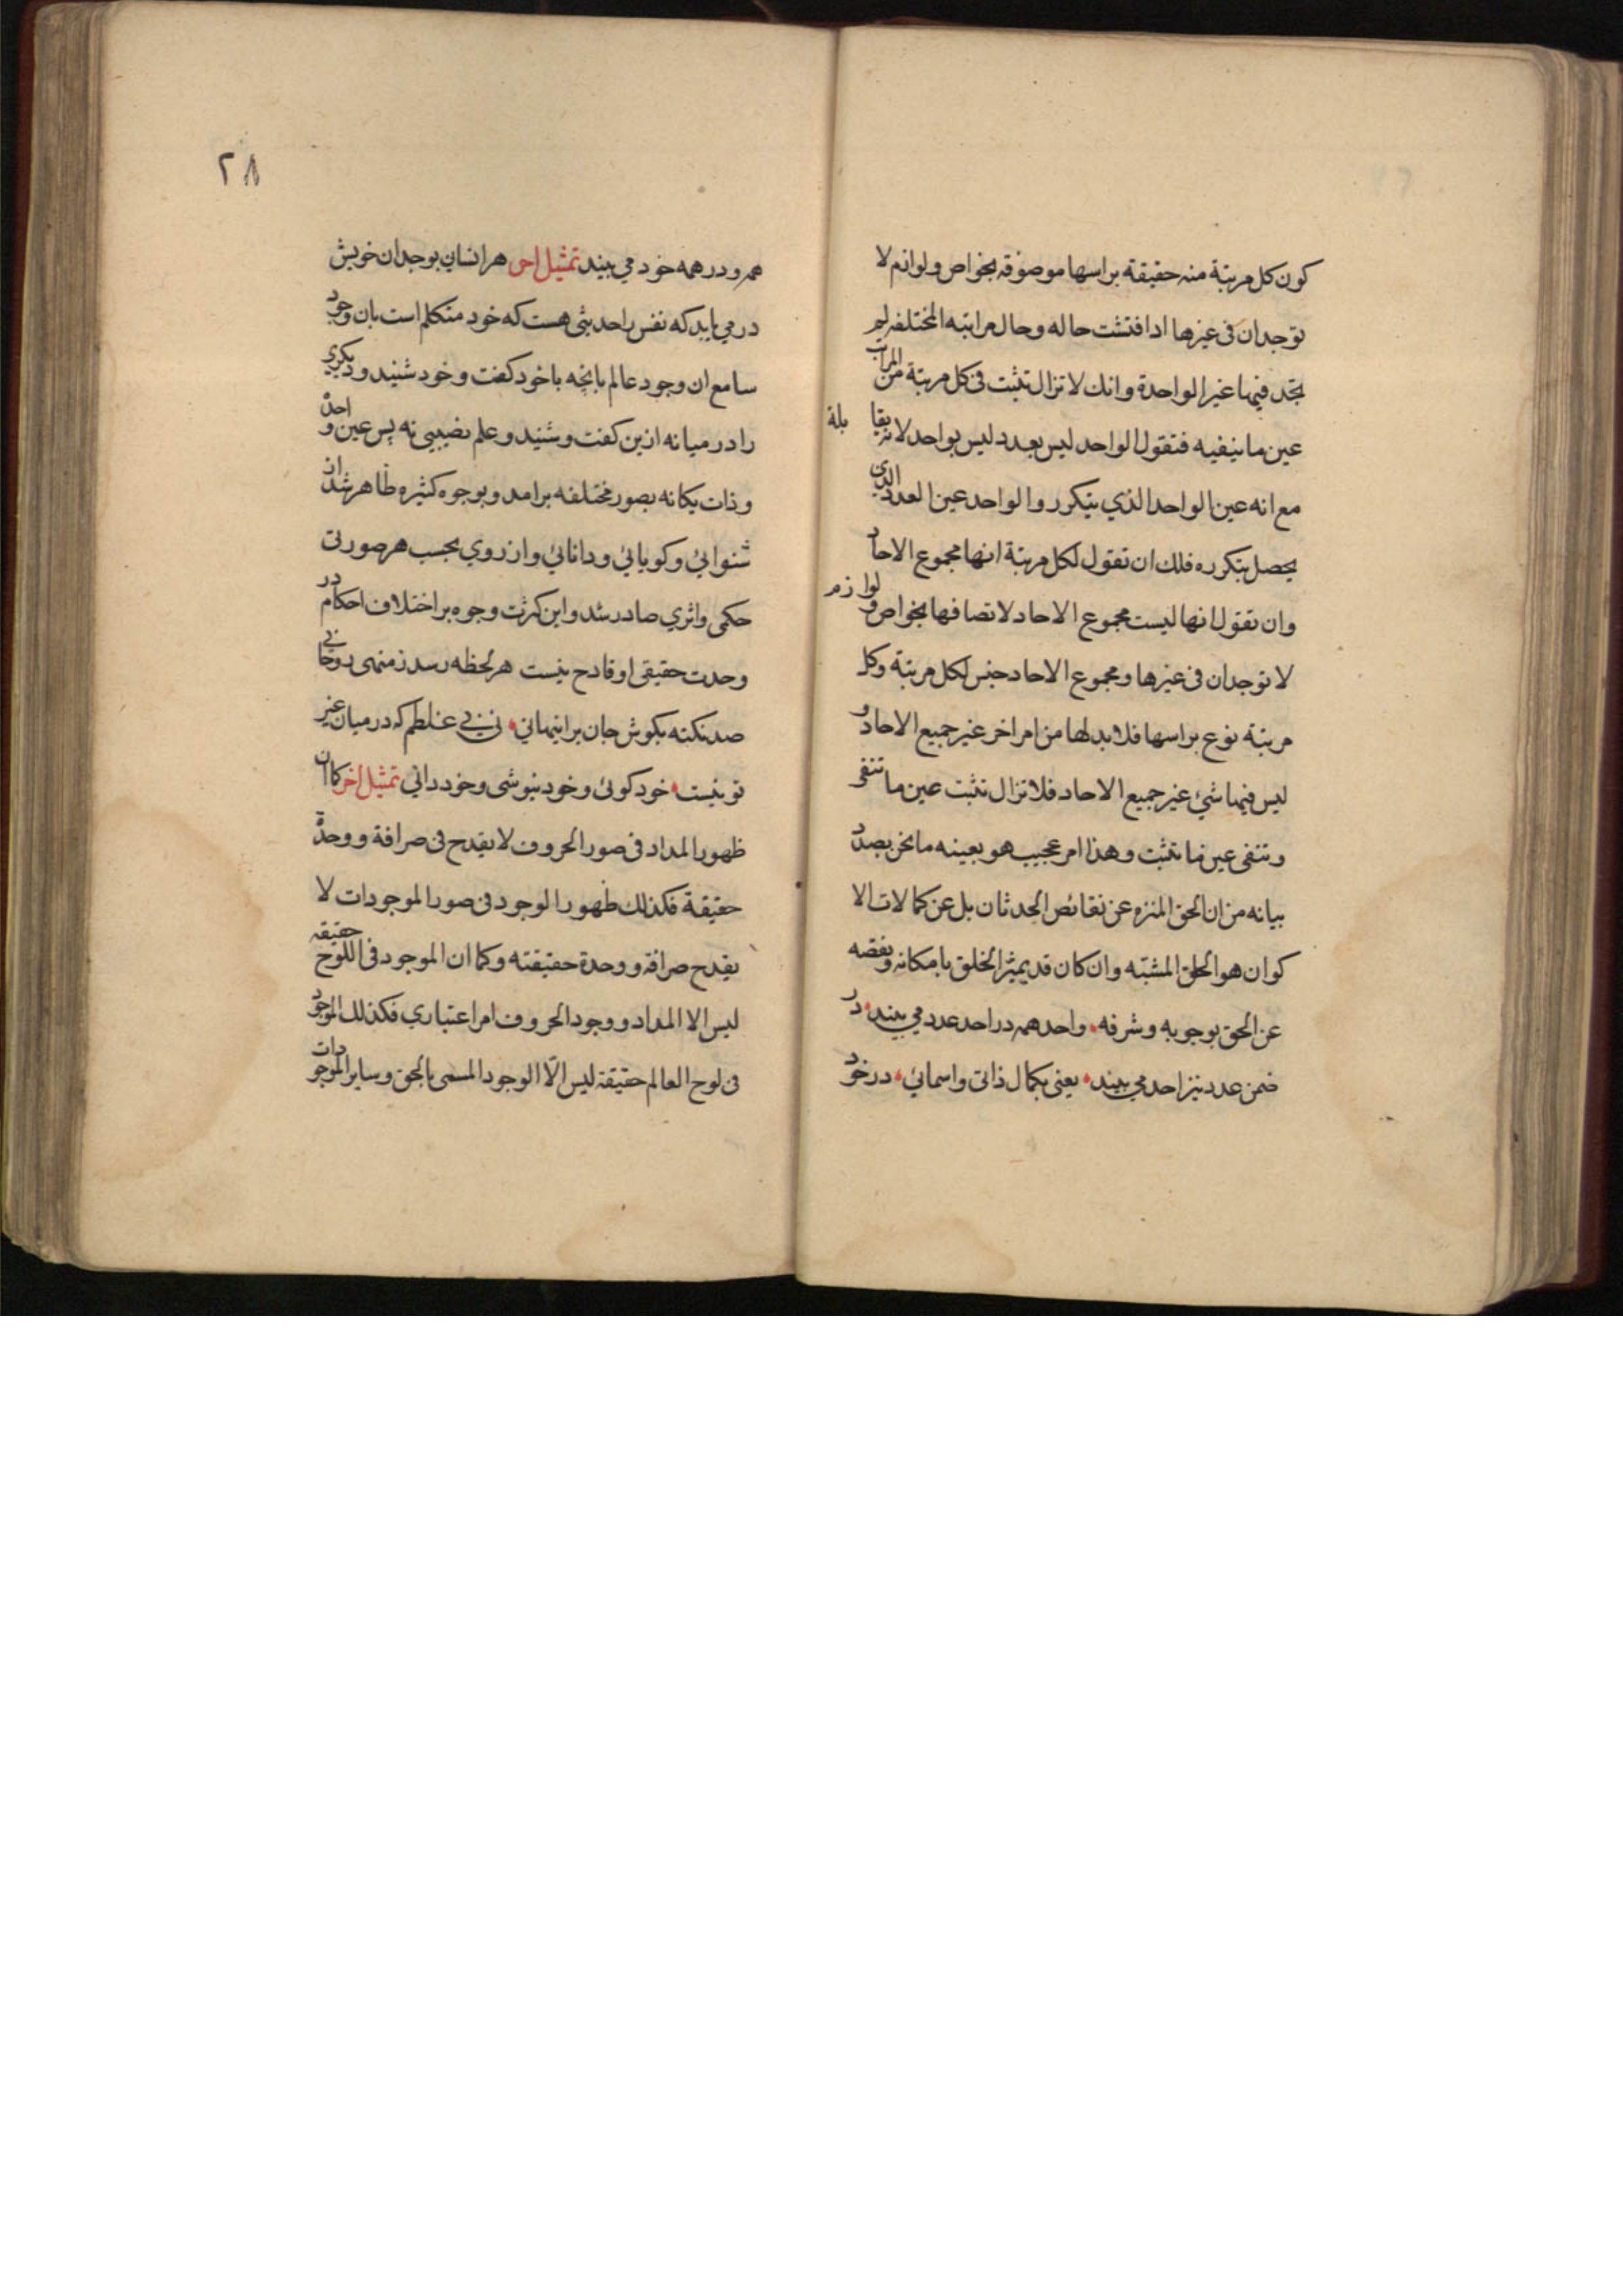 كون كل مرتبة منه حقيقة براسها موصوفة بخواص ولوازم لا
توجدان فى غيرها اذا فتشت حاله وحال مراتبه المختلفه لم
تجد فيها غير الواحدة وانك لا تزال تثبت فى كل مرتبة من المراتب
عين ما ينفيه فتقول الواحد ليس بعدد ليس بواحد لانه يقا بله
مع انه عين الواحد الذي يتكرر والواحد عين العدد الذي
يحصل بتكرره فلك ان تقول لكل مرتبة انها مجموع الاحاد
وان تقول انها ليست مجموع الاحاد لاتصافها بخواص و لوازم
لا توجدان فى غيرها ومجموع الاحاد جنس لكل مرتبة وكل
مرتبة نوع براسها فلا بد لها من امر اخر غير جميع الاحاد و
ليس فيها شيئ غير جميع الاحاد فلا تزال تثبت عين ما تنفى
وتنفى عين ما تثبت وهذا امر عجيب هو بعينه ما نحن بصدد
بيانه من ان الحق المنزه عن نقائص الحدثان بل عن كمالات الا
كوان هو الخلق المشبه وان كان قد يميز الخلق بامكانه ونقصه
عن الحق بوجوبه وشرفه واحد همه در احد عدد مي بيند در
ضمن عدد نيز احد مي بيند يعنى بكمال ذاتى واسمائى در خود
٢٨
همه و در همه خود مي بيند تمثيل اخر هر انسان بوجدان خويش
در مي يابد كه نفس را حديثى هست كه خود متكلم است بان وخود
سامع ان وجود عالم بانچه باخود كفت وخود شنيد وديكري
را درميانه ازين كفت وشنيد وعلم نصيبى نه پس عين واحد
وذات يكانه بصور مختلفه برامد وبوجوه كثيره ظاهر شد از
شنوائي وكويائي ودانائي واز روي بحسب هر صورتى
حكمى واثري صادر شد واين كثرت وجوه بر اختلاف احكام در
وحدت حقيقى او قادح نيست هر لحظه رسد ز منهى روحانى
صد نكته بكوش جان برا پنهانى نى نى غلطم كه در ميان غير
تو نيست خود كوئى وخود نيوشى وخود دانى تمثيل اخر كما ان
ظهور المداد فى صور الحروف لا يقدح فى صرافة ووحدة
حقيقة فكذلك ظهور الوجود فى صور الموجودات لا
يقدح صرافة ووحدة حقيقته وكما ان الموجود فى اللوح حقيقه
ليس الا المداد ووجود الحروف امر اعتباري فكذلك الموجود
فى لوح العالم حقيقة ليس الّا الوجود المسمى بالحق وساير الموجودات